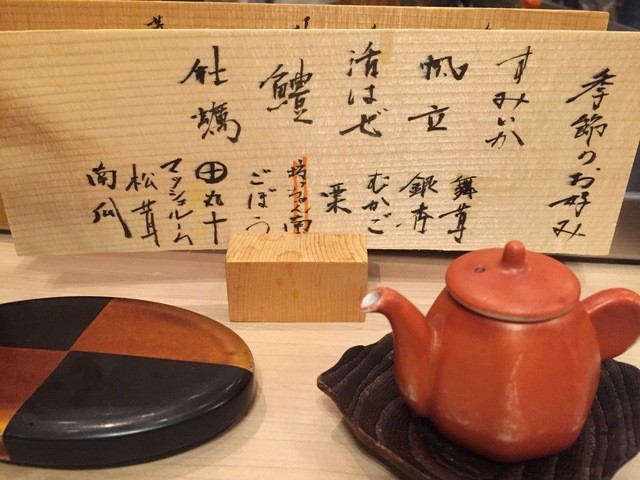 季節のお好み
すみいか
舞茸
帆立
銀杏
活はぜ
むかご
栗
鱧
ごぼう
丸十
牡蠣
マッシュルーム
松茸
南瓜